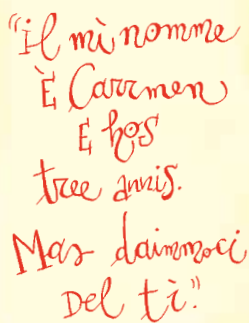 "il mì nomme
È Carrmen
E hos
tree annis.
Mas daimmoci
Del tì."